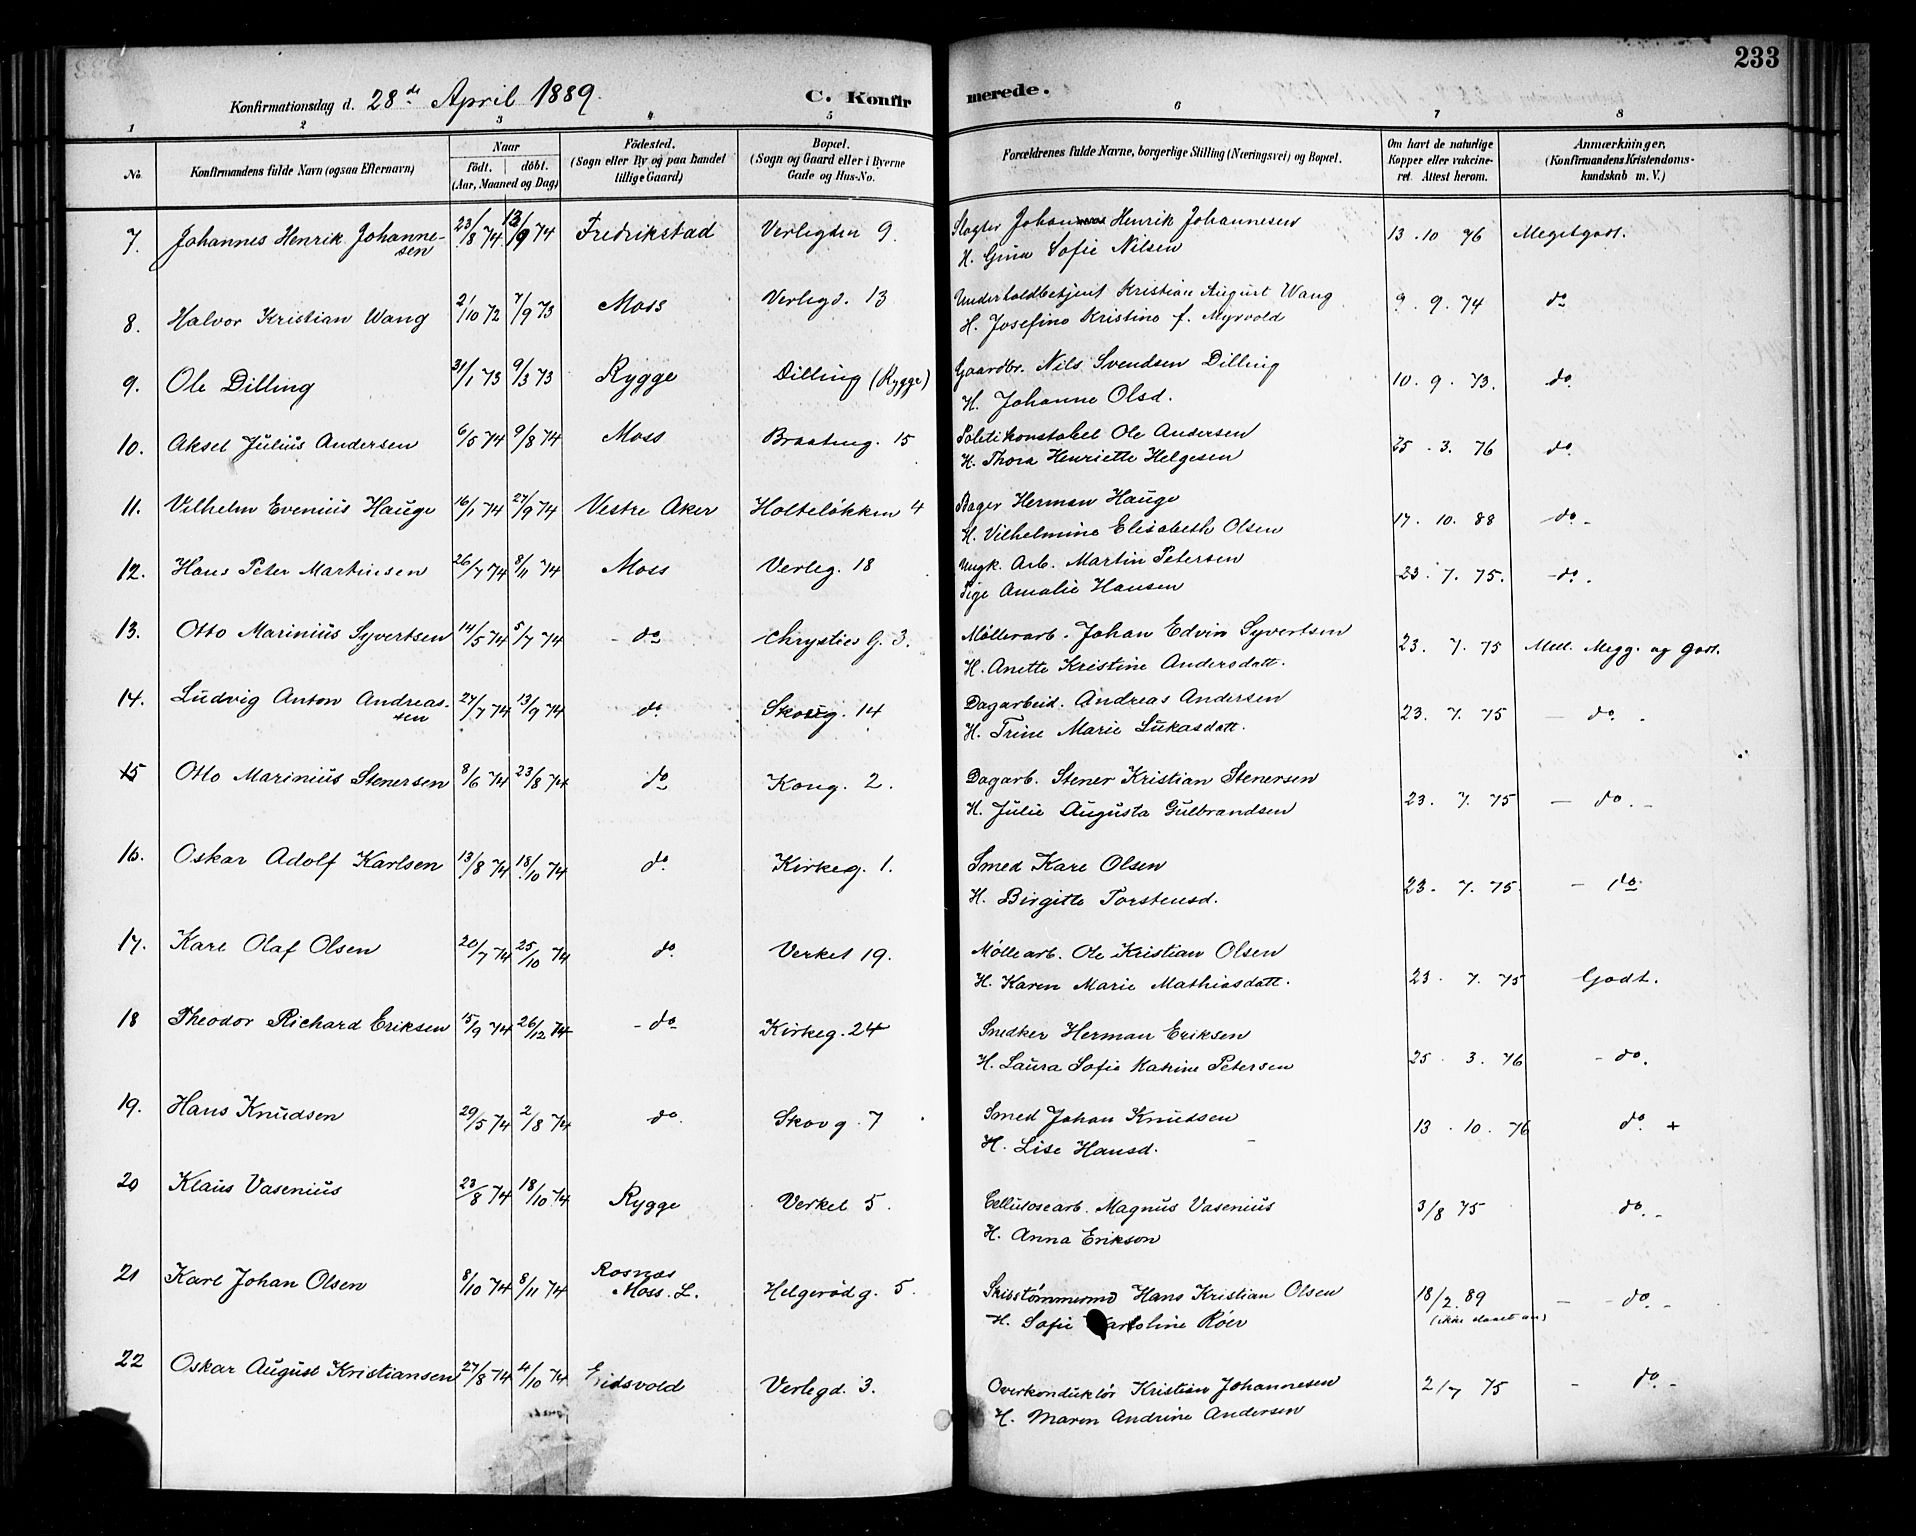 233
Konfirmationsdag d. 28de April 1889. C. Konfirmerede.
1 2 3 4 5 6 7 8
No. Konfirmandens fulde Navn (ogsaa Efternavn) Naar födt. döbt. (Aar, Maaned og Dag) Födested. (Sogn eller By og paa Landet tillige Gaard) Bopæl. (Sogn og Gaard eller i Byerne Gade og Hus-No. Forældrenes fulde Navne, borgerlige Stilling (Næringsvei) og Bopæl. Om havt de naturlige Kopper eller vakcineret. Attest herom. Anmærkninger, (Konfirmandens Kristendomskundskab m. V.)
7. Johannes Henrik Johannesen 23/8 74 13/9 74 Fredrikstad Verlegden 9. Slagter Johan Henrik Johannesen 13. 10 76 Megetgodt.
H. Gina Sofie Nilsen
8. Halvor Kristian Wang 2/10 72 7/9 73 Moss Verlegd. 13 Underholdbetjent Kristian August Wang 9. 9. 74 do
H. Josefine Kristine f. Myrvold
9. Ole Dilling 31/1 73 9/3 73 Rygge Dilling (Rygge) Gaardbr. Nils Svendsen Dilling 10. 9. 73. do.
H. Johanne Olsd.
10. Aksel Julius Andersen 6/5 74 9/8 74 Moss Braateng. 15 Politikonstabel Ole Andersen 25. 3. 76 do.
H. Thora Henriette Helgesen
11. Vilhelm Evenius Hauge 16/1 74 27/9 74 Vestre Aker Holteløkken 4 Bager Herman Hauge 17. 10. 88 do. -
H. Vilhelmine Elisabeth Olsen
12. Hans Peter Martinsen 26/7 74 8/11 74 Moss Verleg. 18 Ungk. Arb. Martin Petersen 23. 7. 75. - do. -
Pige Amalie Hansen
13. Otto Marinius Syvertsen 14/5 74 5/7 74 - do Chrysties G. 3. Møllerarb. Johan Edvin Syvertsen 23. 7. 75 Mell. Megg. og godt.
H. Anette Kristine Andersdatt.
14. Ludvig Anton Andreassen 27/7 74 13/9 74 do. Skovg. 14 Dagarbeid. Andreas Andersen 23. 7. 75 - do. -
H. Trine Marie Lukasdatt.
15 Otto Marinius Stenersen 8/6 74 23/8 74 do Kong. 2. Dagarb. Stener Kristian Stenersen 23. 7. 75 - do. -
H. Julie Augusta Gulbrandsen
16. Oskar Adolf Karlsen 13/8 74 18/10 74 do. Kirkeg. 1. Smed Karl Olsen 23. 7. 75. - do.
H. Birgitte Torstensd.
17. Karl Olaf Olsen 20/7 74 25/10 74 do. Verket 19. Møllearb. Ole Kristian Olsen 23. 7. 75 Godt.
H. Karen Marie Mathiasdatt.
18 Theodor Richard Eriksen 15/9 74 26/12 74 - do Kirkeg. 24 Snedker Herman Eriksen 25. 3. 76 - do.
H. Laura Sofie Katrine Petersen
19. Hans Knudsen 29/5 74 2/8 74 do. Skovg. 7 Smed Johan Knudsen 13. 10. 76 do. +
H. Lise Hansd.
20 Klaus Vasenius 23/8 74 18/10 74 Rygge Verket 5. Cellulosearb. Magnus Vasenius 3/8 75 do. -
H. Anna Erikson
21 Karl Johan Olsen 8/10 74 8/11 74 Rosnæs Moss. L. Helgerödg. 5. Skibstømmermd Hans Kristian Olsen 18/2. 89 - - do. -
H. Sofie Karoline Röer (ikke slaaet an)
22 Oskar August Kristiansen 27/8 74 4/10 74 Eidsvold Verlegd. 3. Overkonduktör Kristian Johannesen 2/7 75 - do. -
H. Maren Andrine Andersen